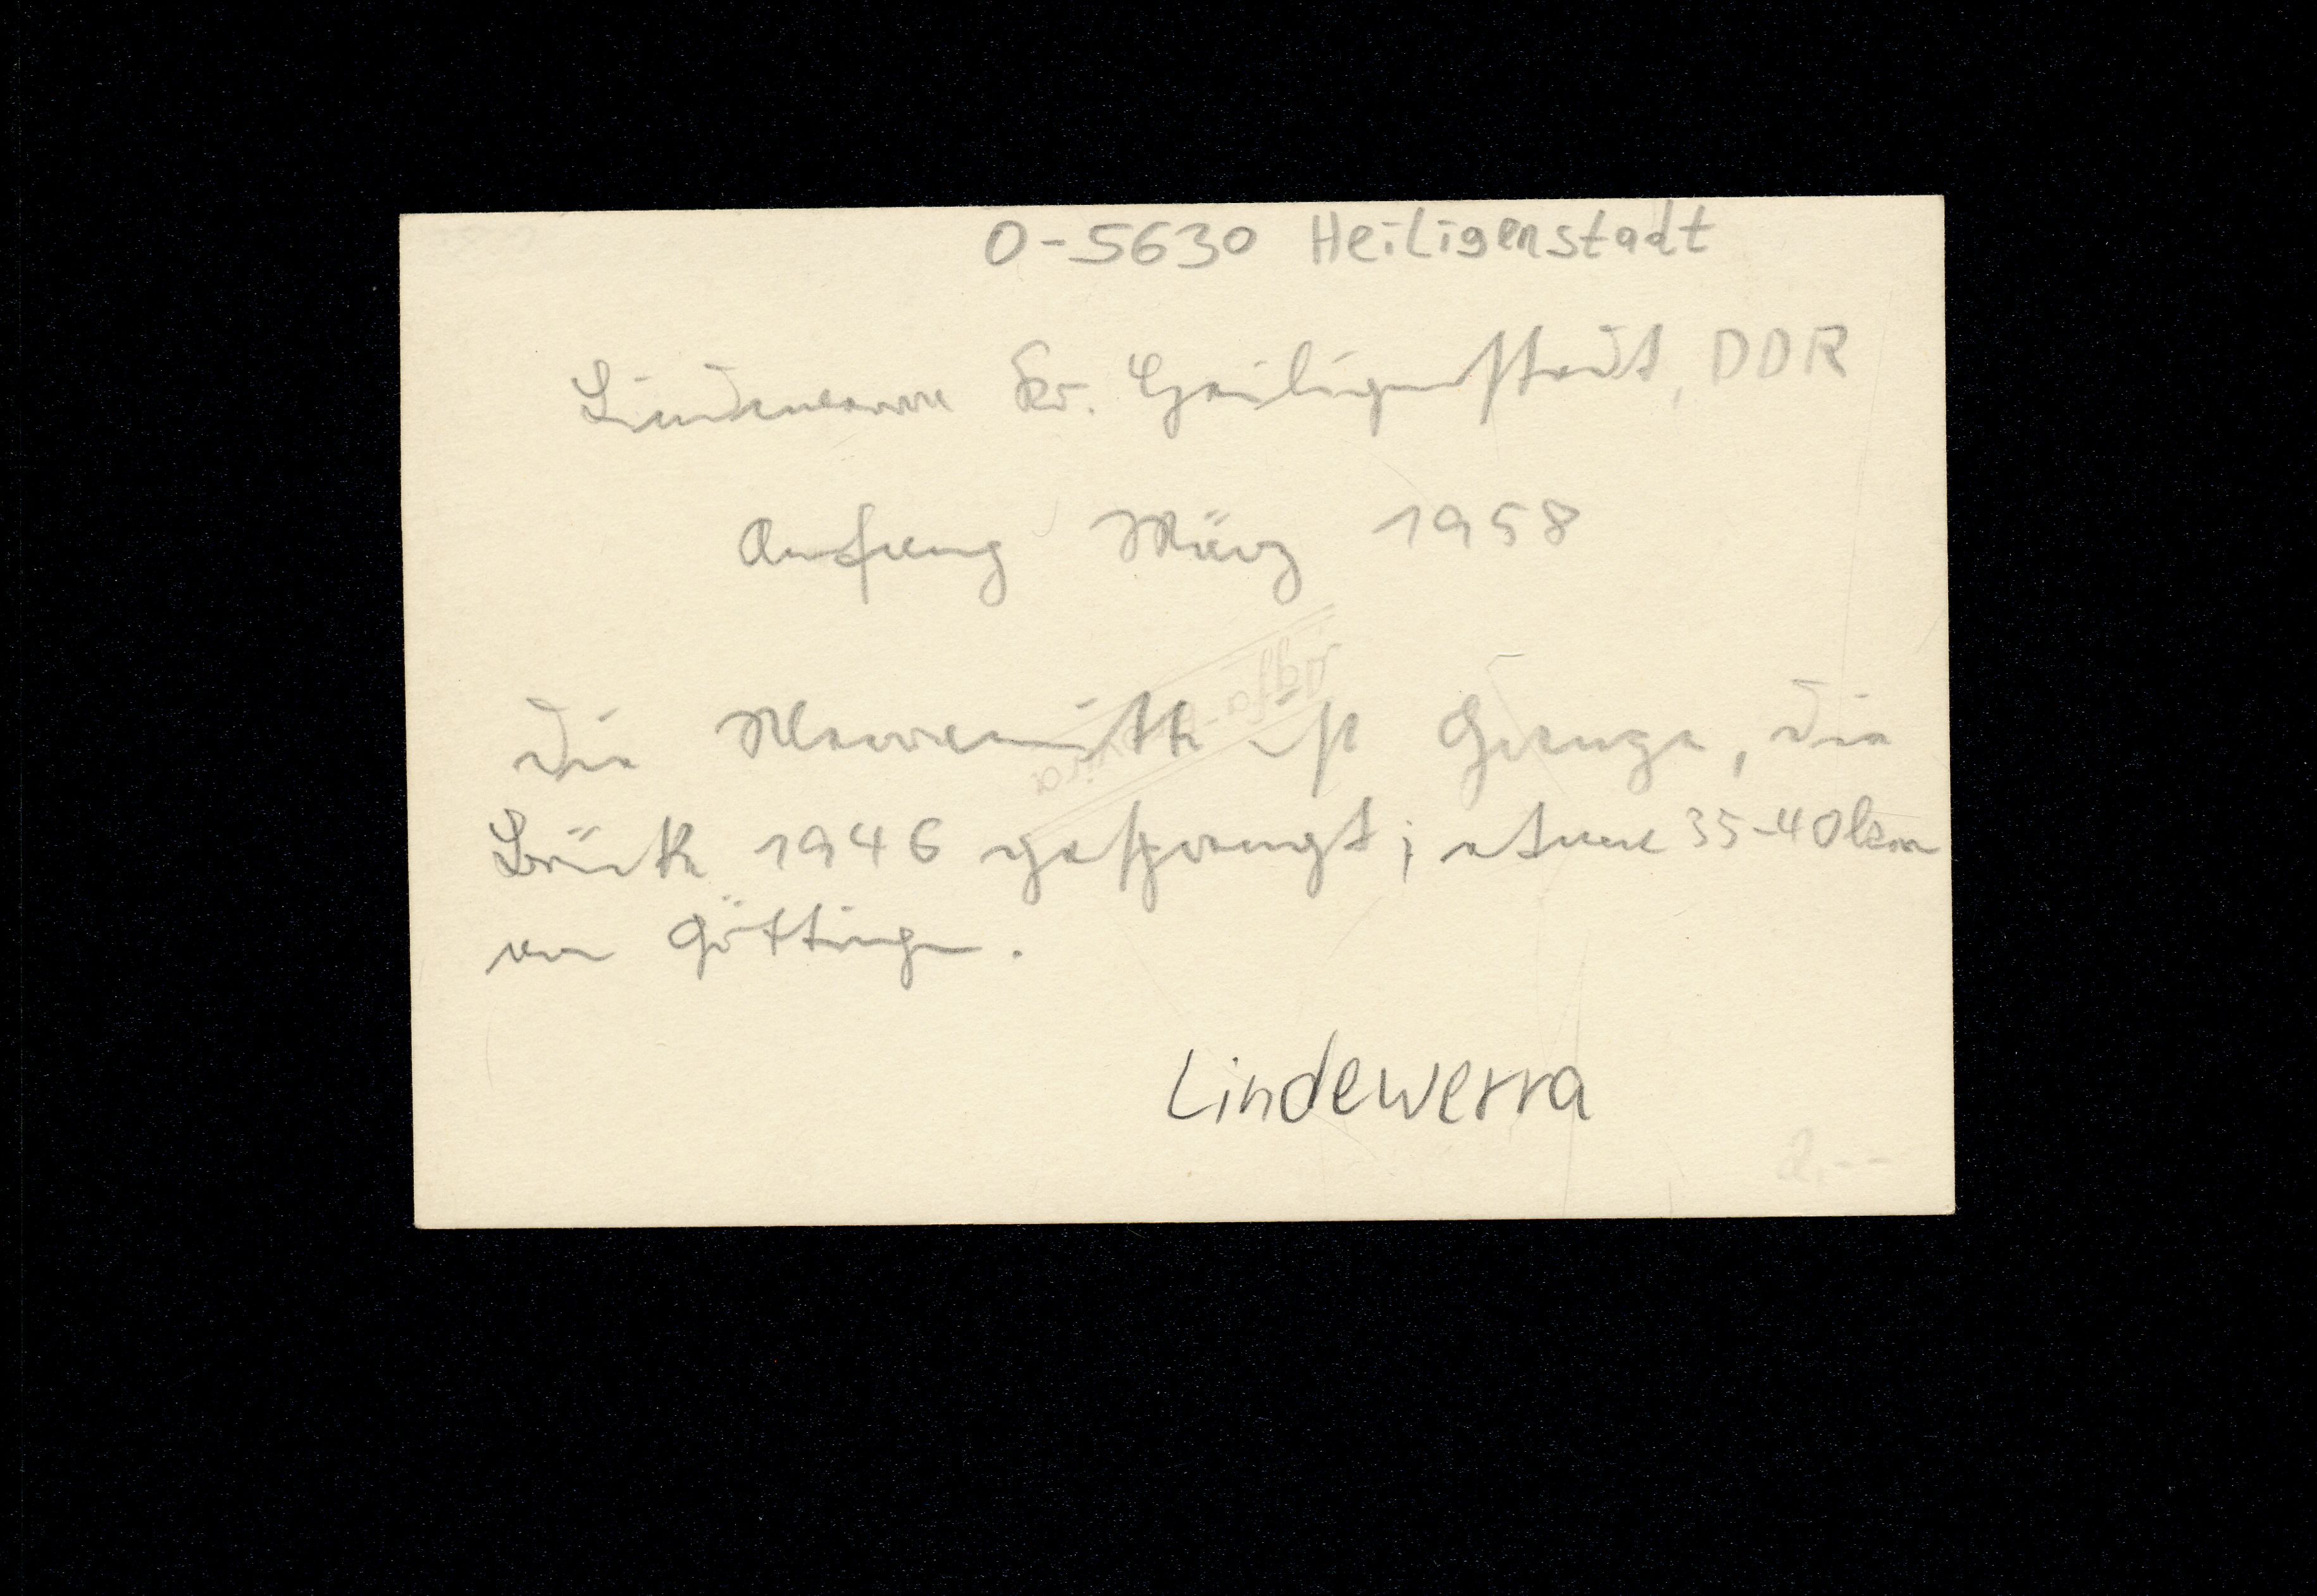 O-5630 Heiligenstadt
Lindewerra Kr. Heiligenstadt, DDR
Anfang März 1958
die Werramitte ist Grenze, die
Brücke 1946 gesprengt; etwa 35-40 km
von Göttingen.
Lindewerra
2,--